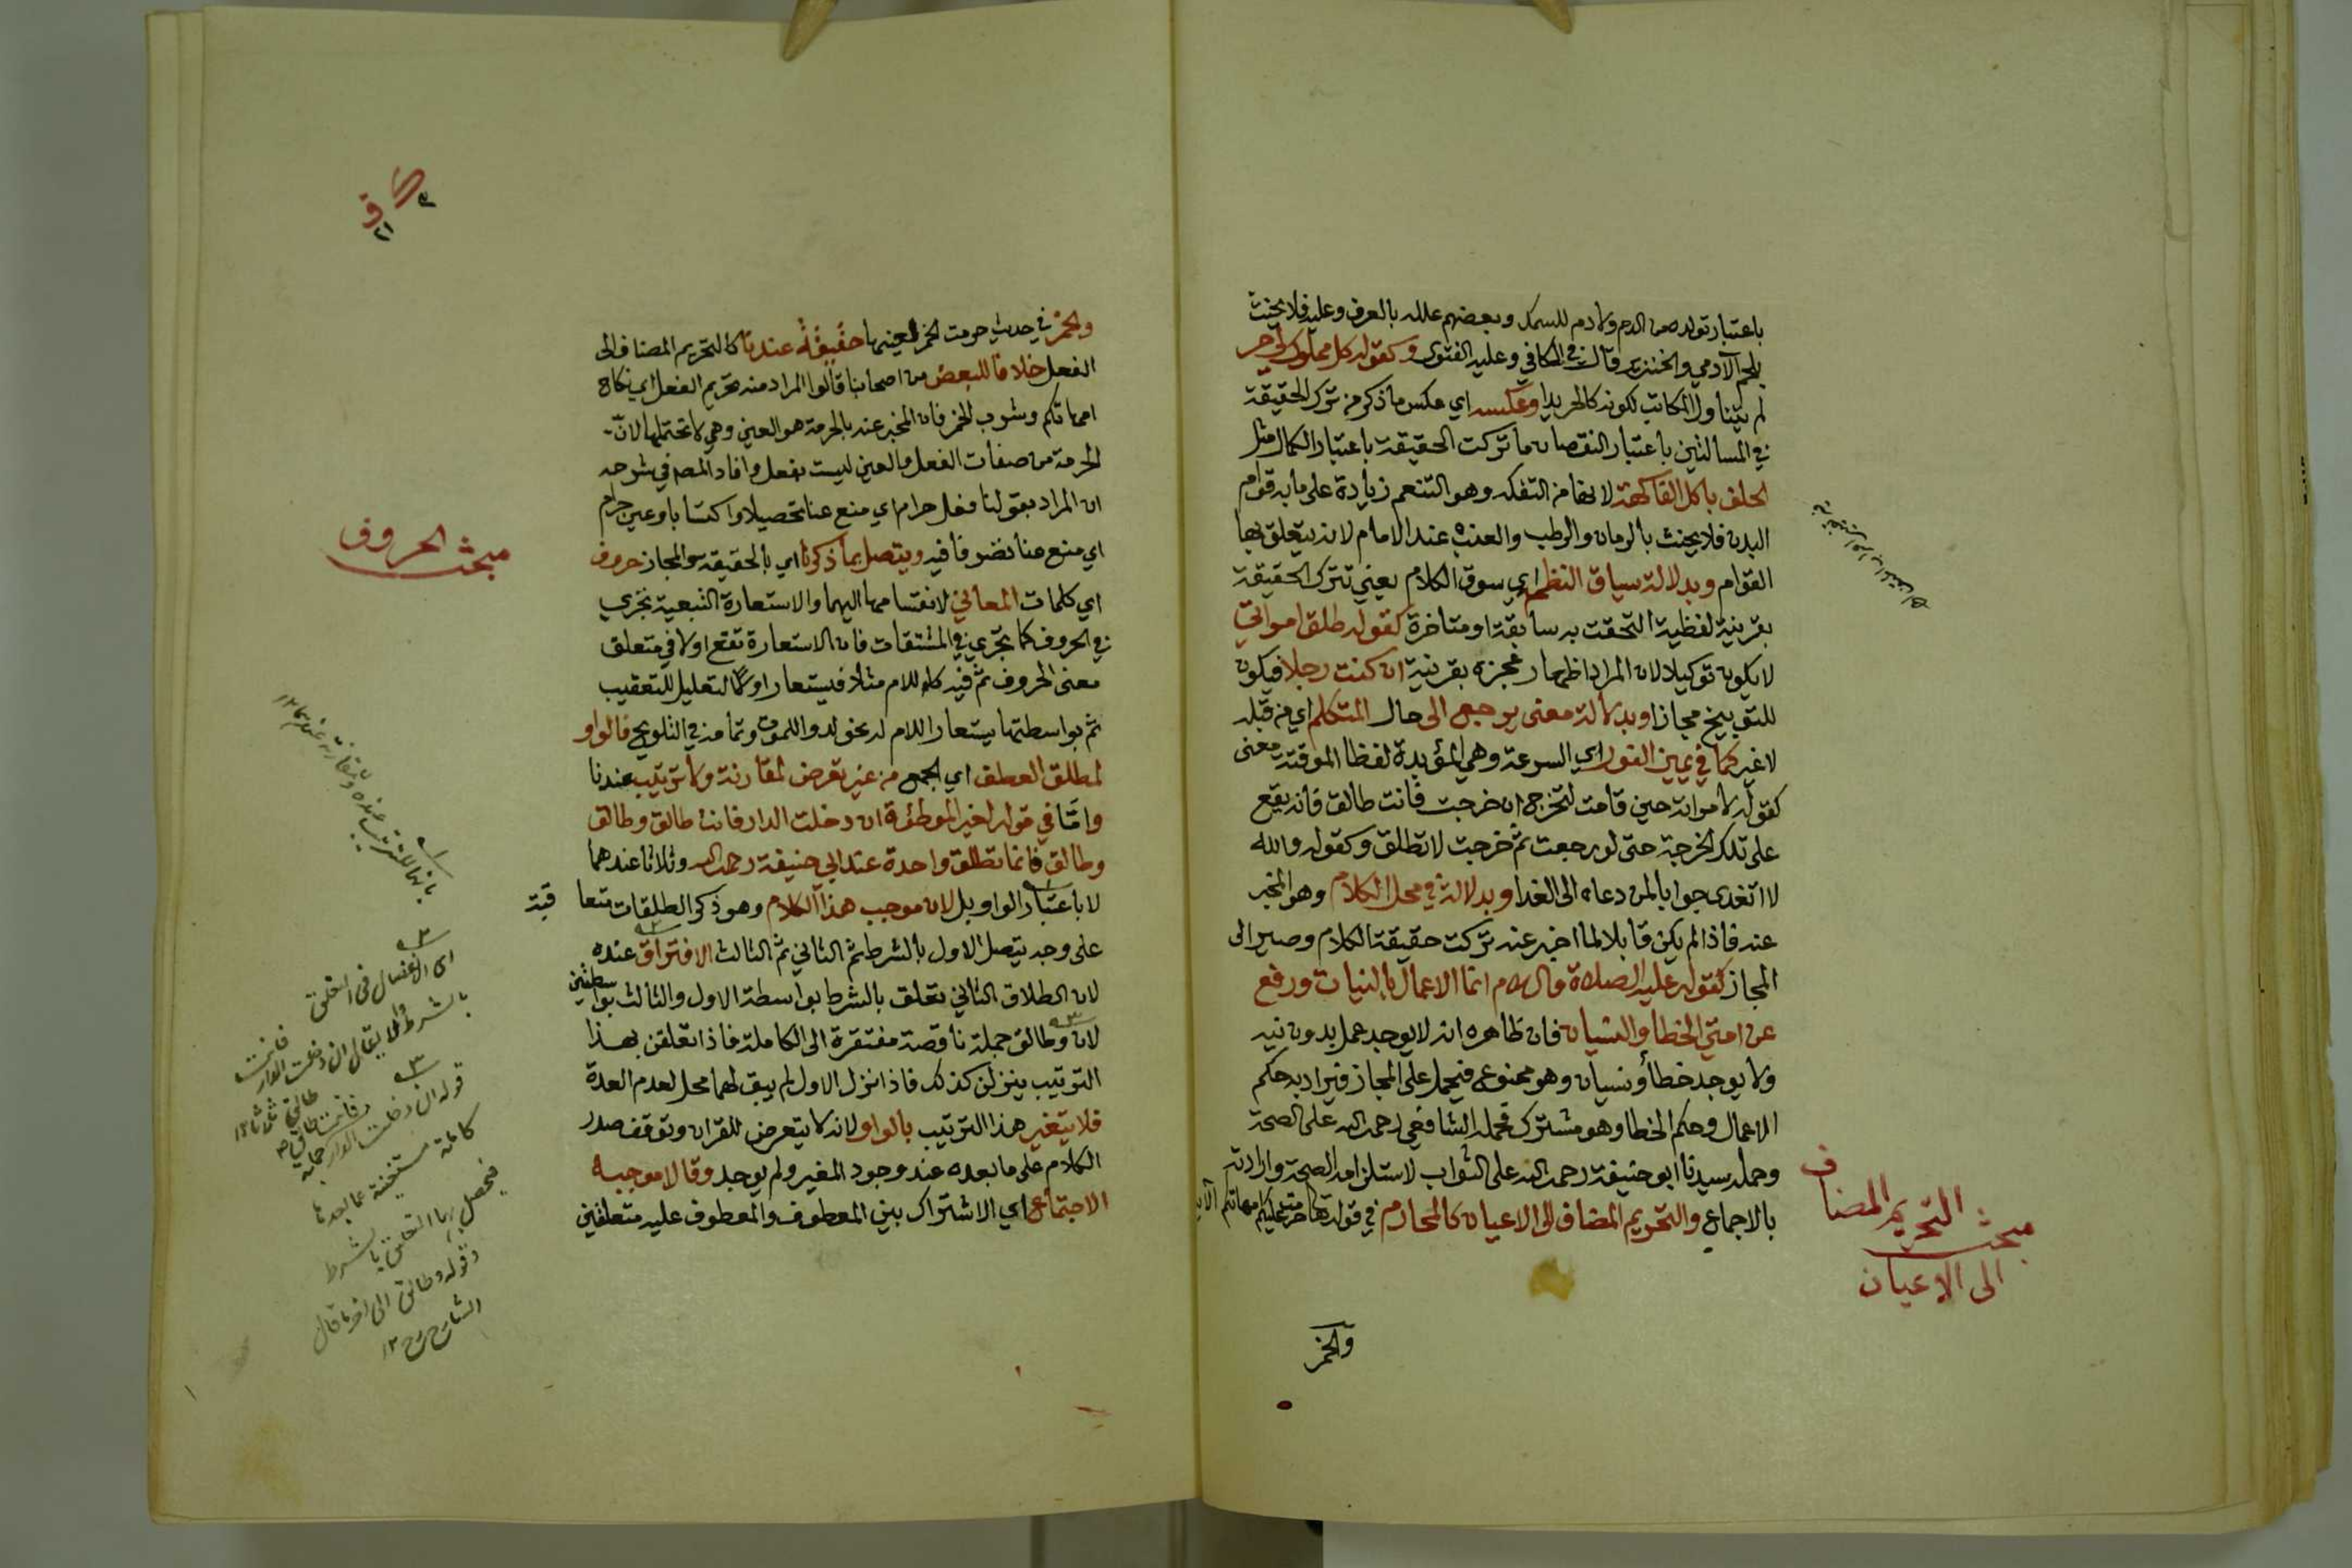 باعتبار تولده من الدم ولا دم للسمك وبعضهم علله بالعرف وعليه فلا يحنث
بلحم الآدمي والخنزير قال في الكافي وعليه الفتوى وكقوله كل مملوك لي حر
لم يتناول المكاتب لكونه كالحر يدا وعكسه اي عكس ما ذكر من ترك الحقيقة
في المسالتين باعتبار النقصان ما تركت الحقيقة باعتبار الكمال مثل
الحلف باكل الفاكهة لانها من التفكه وهو التنعم زيادة على ما به قوام
البدن فلا يحنث بالرمان والرطب والعنب عند الامام لانه يتعلق بها
القوام وبدلالة سياق النظم اي سوق الكلام يعني تترك الحقيقة
بقرينة لفظية التحقت به سابقة او متاخرة كقوله طلق امراتي
لا يكون توكيلا لان المراد اظهار عجزه بقرينة ان كنت رجلا فيكون
للتوبيخ مجازا وبدلالة معنى يرجع الى حال المتكلم اي من قبله
لا غير كما في يمين الفور اي السرعة وهي المؤبدة لفظا الموقتة معنى
كقوله لامراته حين قامت لتخرج ان خرجت فانت طالق فانه يقع
على تلك الخرجة حتى لو رجعت ثم خرجت لا تطلق وكقوله والله
لا اتغدى جوابا لمن دعاه الى الغدا وبدلالة في محل الكلام وهو المخبر
عنه فاذا لم يكن قابلا لما اخبر عنه تركت حقيقة الكلام وصير الى
المجاز كقوله عليه الصلاة والسلام انما الاعمال بالنيات ورفع
عن امتي الخطأ والنسيان فان ظاهره انه لا يوجد عمل بدون نية
ولا يوجد خطأ ونسيان وهو ممنوع فيحمل على المجاز فيراد به حكم
الاعمال وحكم الخطا وهو مشترك فحمله الشافعي رحمه الله على الصحة
وحمله سيدنا ابو حنيفة رحمه الله على الثواب لاستلزامه الصحة وارادته
بالاجماع والتحريم المضاف الى الاعيان كالمحارم في قوله تعالى حرمت عليكم امهاتكم الآية
مبحث التحريم المضاف
الى الاعيان
والخمر
والخمر في حديث حرمت الخمر لعينها حقيقة عندنا كالتحريم المضاف الى
الفعل خلافا للبعض من اصحابنا قالوا المراد منه تحريم الفعل اي نكاح
امهاتكم وشرب الخمر فان المخبر عنه بالحرمة هو العين وهي لا تحتملها لان
الحرمة من صفات الفعل والعين ليست بفعل وافاد المصه في شرحه
ان المراد بقولنا فعل حرام اي منع عنا تحصيلا واكتسابا وعين حرام
اي منع عنا تصرفا فيه ويتصل بما ذكرنا اي بالحقيقة والمجاز حروف
اي كلمات المعاني لانقسامها اليهما والاستعارة التبعية تجري
في الحروف كما تجري في المشتقات فان الاستعارة تقع اولا في متعلق
معنى الحروف ثم فيه كاللام مثلا فيستعار اولا التعليل للتعقيب
ثم بواسطتها يستعار اللام له نحو لدوا للموت وتمامه في التلويح فالواو
لمطلق العطف اي الجمع من غير تعرض لمقارنة ولا ترتيب عندنا
وامّا في قوله لغير الموطوءة ان دخلت الدار فانت طالق وطالق
وطالق فانما تطلق واحدة عند ابي حنيفة رحمه الله وثلاثا عندهما
لا باعتبار الواو بل لان موجب هذا الكلام وهو ذكر الطلقات متعا قبة
على وجه يتصل الاول بالشرط ثم الثاني ثم الثالث الافتراق عنده
لان الطلاق الثاني تعلق بالشرط بواسطة الاول والثالث بواسطتين
لان وطالق جملة ناقصة مفتقرة الى الكاملة فاذا تعلقن بهذا
الترتيب ينزلن كذلك فاذا نزل الاول لم يبق لهما محل لعدم العدة
فلا يتغير هذا الترتيب بالواو لانه لا يتعرض للقران وتوقف صدر
الكلام على ما بعده عند وجود المغير ولم يوجد وقالا موجبه
الاجتماع اي الاشتراك بين المعطوف والمعطوف عليه متعلقين
مبحث الحروف
اي الانفصال في التعلق
بالشرط
قوله ان دخلت الدار
فيحصل بها التعلق بالشرط
وقوله وطالق الى اخره قال
الشارح ١٢